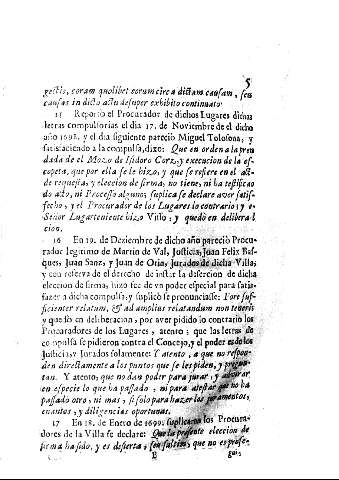 5
gestio, coram quolibet eorum circa dictam causam, seu
causas in dicto actu desuper exhibito continuatò
15 Reportò el Procurador de dichos Lugares dichas
letras compulsorias el dia 17. de Noviembre de el dicho
año 1698. y el dia siguiente pareciò Miguel Tolosona, y
satisfaciendo a la compulsa, dixo: Que en orden a la pren
dada de el Mozo de Isidoro Corz, y execucion de la es-
copeta, que por ella se le hizo, y que se refiere en el act-
de requesta, y eleccion de firma, no tiene, ni ha testifica
do acto, ni Processo alguno; suplica se declare aver satis-
fecho, y el Procurador de los Lugares lo contrario; y e
Señor Lugarteniente hizo Visso, y quedò en delibera
cion.
16 En 19. de Deziembre de dicho año pareciò Procu-
rador legitimo de Martin de Val, Justicia, Juan Felix Bas-
ques, Juan Sanz, y Juan de Oria, Jurados de dicha Villa,
y con reserva de el derecho de instar la desercion de dicha
eleccion de firma, hizo fee de vn poder especial para satis-
fazer a dicha compulsa; y suplicò se pronunciasse: Fore suf-
ficienter relatum, & ad amplius relatandum non teneris
y quedò en deliberacion, por aver pidido lo contrario los
Procuradores de los Lugares, atento; que las letras de
compulsa se pidieron contra el Concejo, y el poder es de los
Justicia, y Jurados solamente: Y atento, a que no respon-
den directamente a los puntos que se les piden, y pregun-
tan. Y atento, que no dan poder para jurar, y
en especie lo que ha passado, ni para atestar que no ha
passado otro, ni mas, si solo para hazer los juramentos,
cuantos, y diligencias oportunas.
17 En 18. de Enero de 1699. suplicaron los Procura-
dores de la Villa se declare: Que la presente eleccion de
firma ha sido, y es desierta, seu sultius, que no es prose-
B
gui-